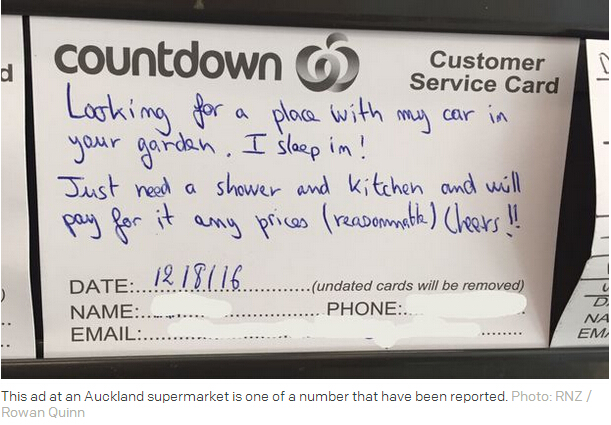 countdown
Customer
Service Card
Looking for a place with my car in
your garden. I sleep in!
Just need a shower and kitchen and will
pay for it any prices (reasonnable) Cheers !!
DATE:...12/8/16..............(undated cards will be removed)
NAME:.......................... PHONE:..
EMAIL:.............
d
NA
EMA
This ad at an Auckland supermarket is one of a number that have been reported. Photo: RNZ /
Rowan Quinn